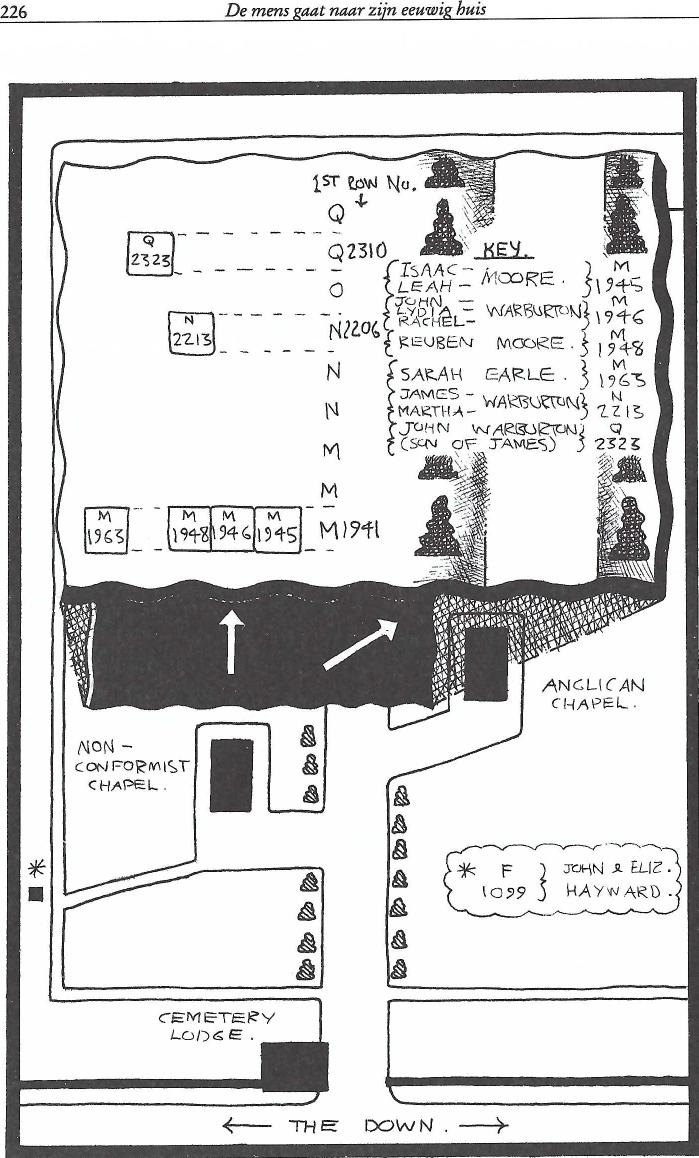 226
De mens gaat naar zijn eeuwig huis
1ST ROW No.
Q
Q
2323
Q2310
O
N
2213
N2206
N
N
M
M
M
1963
M
1948
M
1946
M
1945
M1941
KEY.
ISAAC -
LEAH - MOORE. M 1945
JOHN -
LYDIA - WARBURTON M 1946
RACHEL -
REUBEN MOORE. M 1948
SARAH EARLE. M 1963
JAMES -
MARTHA - WARBURTON N 2213
JOHN WARBURTON
(SON OF JAMES) Q 2323
ANGLICAN
CHAPEL.
NON -
CONFORMIST
CHAPEL.
* F JOHN & ELIZ.
1099 HAYWARD.
*
CEMETERY
LODGE.
← THE DOWN. →